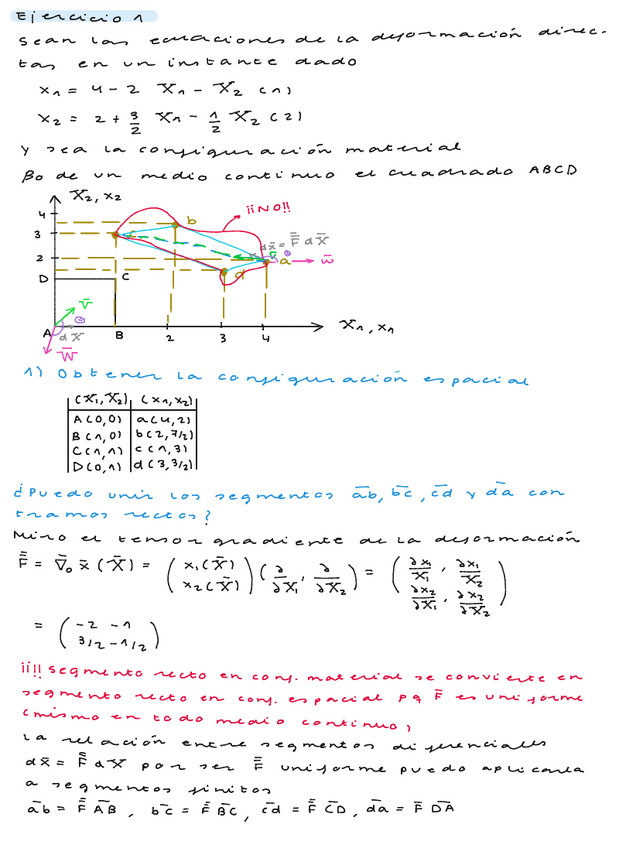 Ejercicio 1
Sean las ecuaciones de la deformación direc-
tas en un instante dado
x₁ = 4 - 2 X₁ - X₂ (1)
x₂ = 2 + 3/2 X₁ - 1/2 X₂ (2)
y sea la configuración material
βo de un medio continuo el cuadrado ABCD
X₂, x₂
4
3
2
D
C
A
B
2
3
4
X₁, x₁
b
¡¡NO!!
dx̄ = F̿ dX̄
v̄
a
w̄
d
V̄
dX̄
W̄
1) Obtener la configuración espacial
(X₁, X₂) (x₁, x₂)
A(0,0) a(4,2)
B(1,0) b(2,7/2)
C(1,1) c(1,3)
D(0,1) d(3,3/2)
¿Puedo unir los segmentos ab̄, bc̄, cd̄ y dā con
tramos rectos?
Miro el tensor gradiente de la deformación
F̿ = ∇̄₀ x̄ (X̄) = (x₁(X̄) x₂(X̄)) (∂/∂X₁, ∂/∂X₂) = (∂x₁/X₁, ∂x₁/∂X₂ ∂x₂/∂X₁, ∂x₂/∂X₂)
= (-2 -1 3/2 -1/2)
¡¡!! segmento recto en conf. material se convierte en
segmento recto en conf. espacial pq F̿ es uniforme
(mismo en todo medio continuo)
La relación entre segmentos diferenciales
dx̄ = F̿ dX̄ por ser F̿ uniforme puedo aplicarla
a segmentos finitos
ab̄ = F̿ AB̄, bc̄ = F̿ BC̄, cd̄ = F̿ CD̄, dā = F̄ DĀ